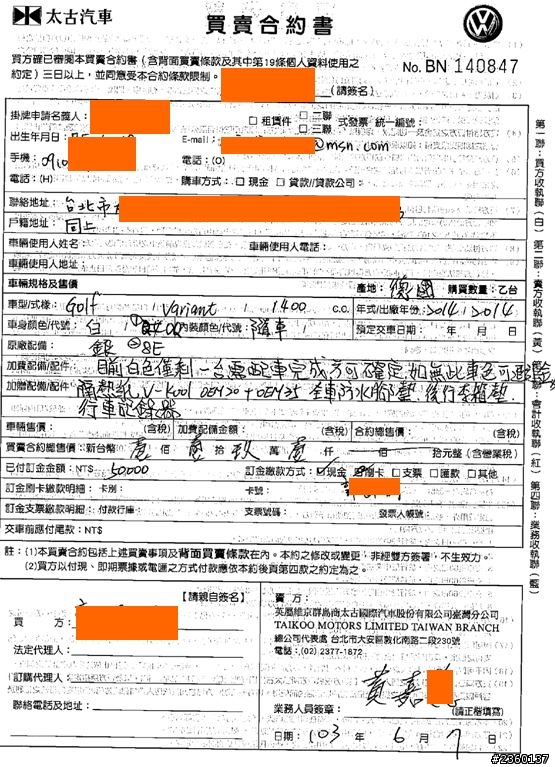 太古汽車
買賣合約書
買方確已審閱本買賣合約書(含背面買賣條款及其中第19條個人資料使用之
約定)三日以上,並同意受本合約條款限制。
(請簽名)
No. BN 140847
掛牌申請名義人:
□ 租賃件 □ 二聯 □ 三聯 式發票 統一編號:
出生年月日:
E-mail: @msn.com
手機: 0910
電話:(O)
電話:(H)
購車方式:□ 現金 □ 貸款//貸款公司:
聯絡地址: 台北市
戶籍地址: 同上
車輛使用人姓名
車輛使用人電話:
車輛使用人地址:
車輛規格及售價
產地: 德國 購買數量:乙台
車型/式樣: Golf Variant 1400 c.c.
年式/出廠年份: 2014 / 2014
車身顏色/代號: 白 ① 0Q0Q 內裝顏色/代號: 隨車
預定交車日期: 年 月 日
原廠配備: 銀 ② 8E
加費配備/配件: 目前白色僅剩一台需配車完成方可確定,如無此車色可退訂
加贈配備/配件: 隔熱紙 V-Kool OEM70+OEM35 全車防水腳踏墊、後行李箱墊
行車記錄器
車輛售價: (含稅) 加費配備金額: (含稅) 合約總售價: (含稅)
買賣合約總售價:新台幣 壹 佰 壹 拾 玖 萬 壹 仟 佰 拾元整 (含營業稅)
已付訂金金額:NT$ 50000
訂金繳款方式:□現金 ☑刷卡 □支票 □匯款 □其他
訂金刷卡繳款明細:卡別: 卡號:
訂金支票繳款明細:付款行庫: 支票號碼: 發票人帳號:
交車前應付尾款:NT$
註:(1)本買賣合約包括上述買賣事項及背面買賣條款在內。本約之修改或變更,非經雙方簽署,不生效力。
(2)買方以付現、即期票據或電匯之方式付款應依本約後頁第四款之約定為之。
【請親自簽名】
買 方:
法定代理人:
訂購代理人:
聯絡電話及地址:
賣 方:
英屬維京群島商太古國際汽車股份有限公司臺灣分公司
TAIKOO MOTORS LIMITED TAIWAN BRANCH
總公司代表處 台北市大安區敦化南路二段230號
電話:(02) 2377-1872
黃嘉
業務人員簽章: (請正楷填寫)
日期: 103 年 6 月 7 日
第一聯:買方收執聯(白) 第二聯:賣方收執聯(黃) 第三聯:會計收執聯(紅) 第四聯:業務收執聯(藍)
#2360137